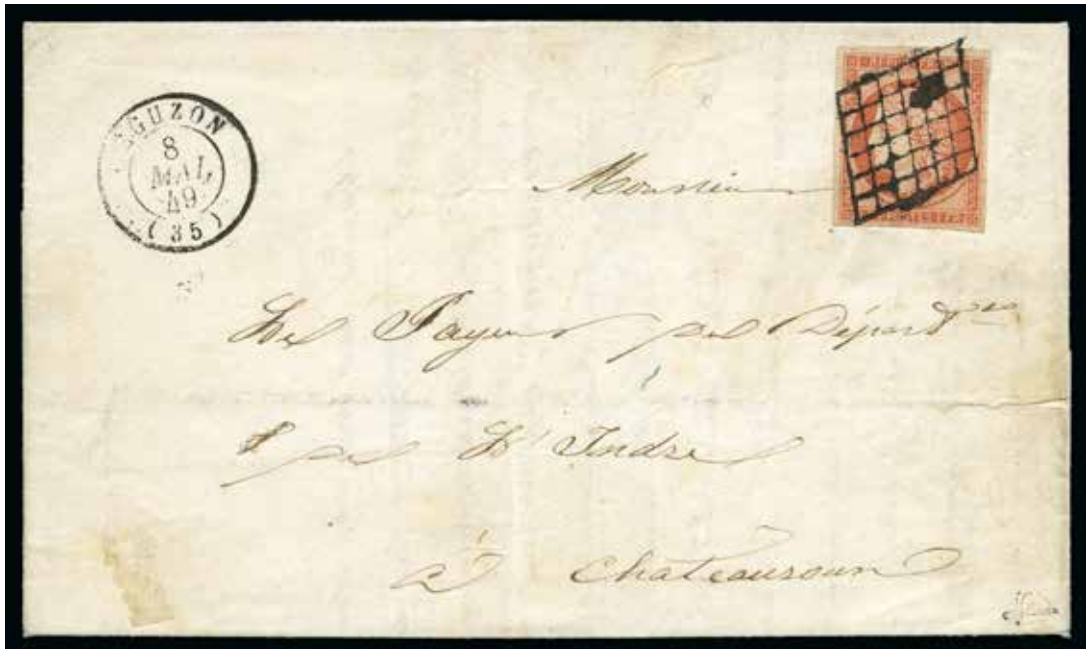 EGUZON
8
MAI
49
(35)
Monsieur
Le Payeur du Départ
de L'Indre
à Chateauroux